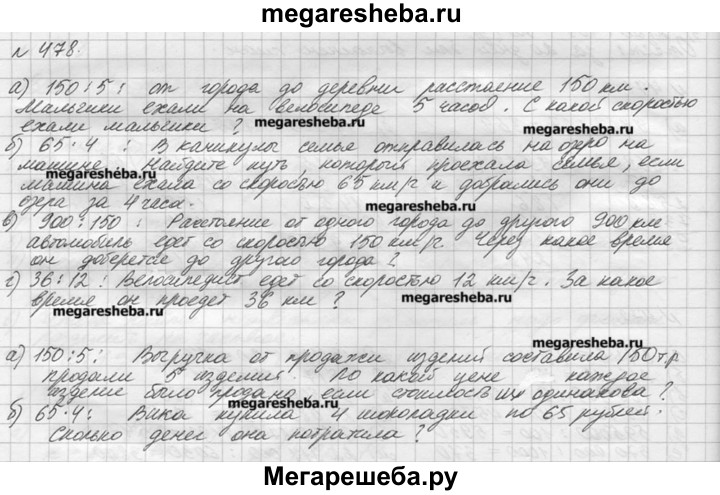 megaresheba.ru
№ 478.
а) 150 : 5 : от города до деревни расстаение 150 км.
Мальчики ехали на велосипеде 5 часов. С какой скоростью
ехали мальчики ?
megaresheba.ru
б) 65 · 4 : В каникулы семье отправилась на озро на
машине. Найдите путь, который проехала семья, если
megaresheba.ru
megaresheba.ru
машина ехала со скоростью 65 км/г и добрались они до
озера за 4 часа.
megaresheba.ru
в) 900 : 150 : Расстоение от одного города до другого 900 км
автомобиль едет со скоростью 150 км/г. Через какое время
он доберется до другого города ?
г) 36 : 12 : Велосипедист едет со скоростью 12 км/г. За какое
время он проедет 36 км ?
megaresheba.ru
megaresheba.ru
megaresheba.ru
а) 150 : 5 : Выручка от продажи изделий составила 150 т.р
продали 5 изделий. По какой цене каждое
изделие было продано если стоимость их одинакова ?
megaresheba.ru
б) 65 · 4 : Вика купила 4 шоколадки по 65 рублей.
Сколько денег она потратила ?
megaresheba.ru
Мегарешеба.ру